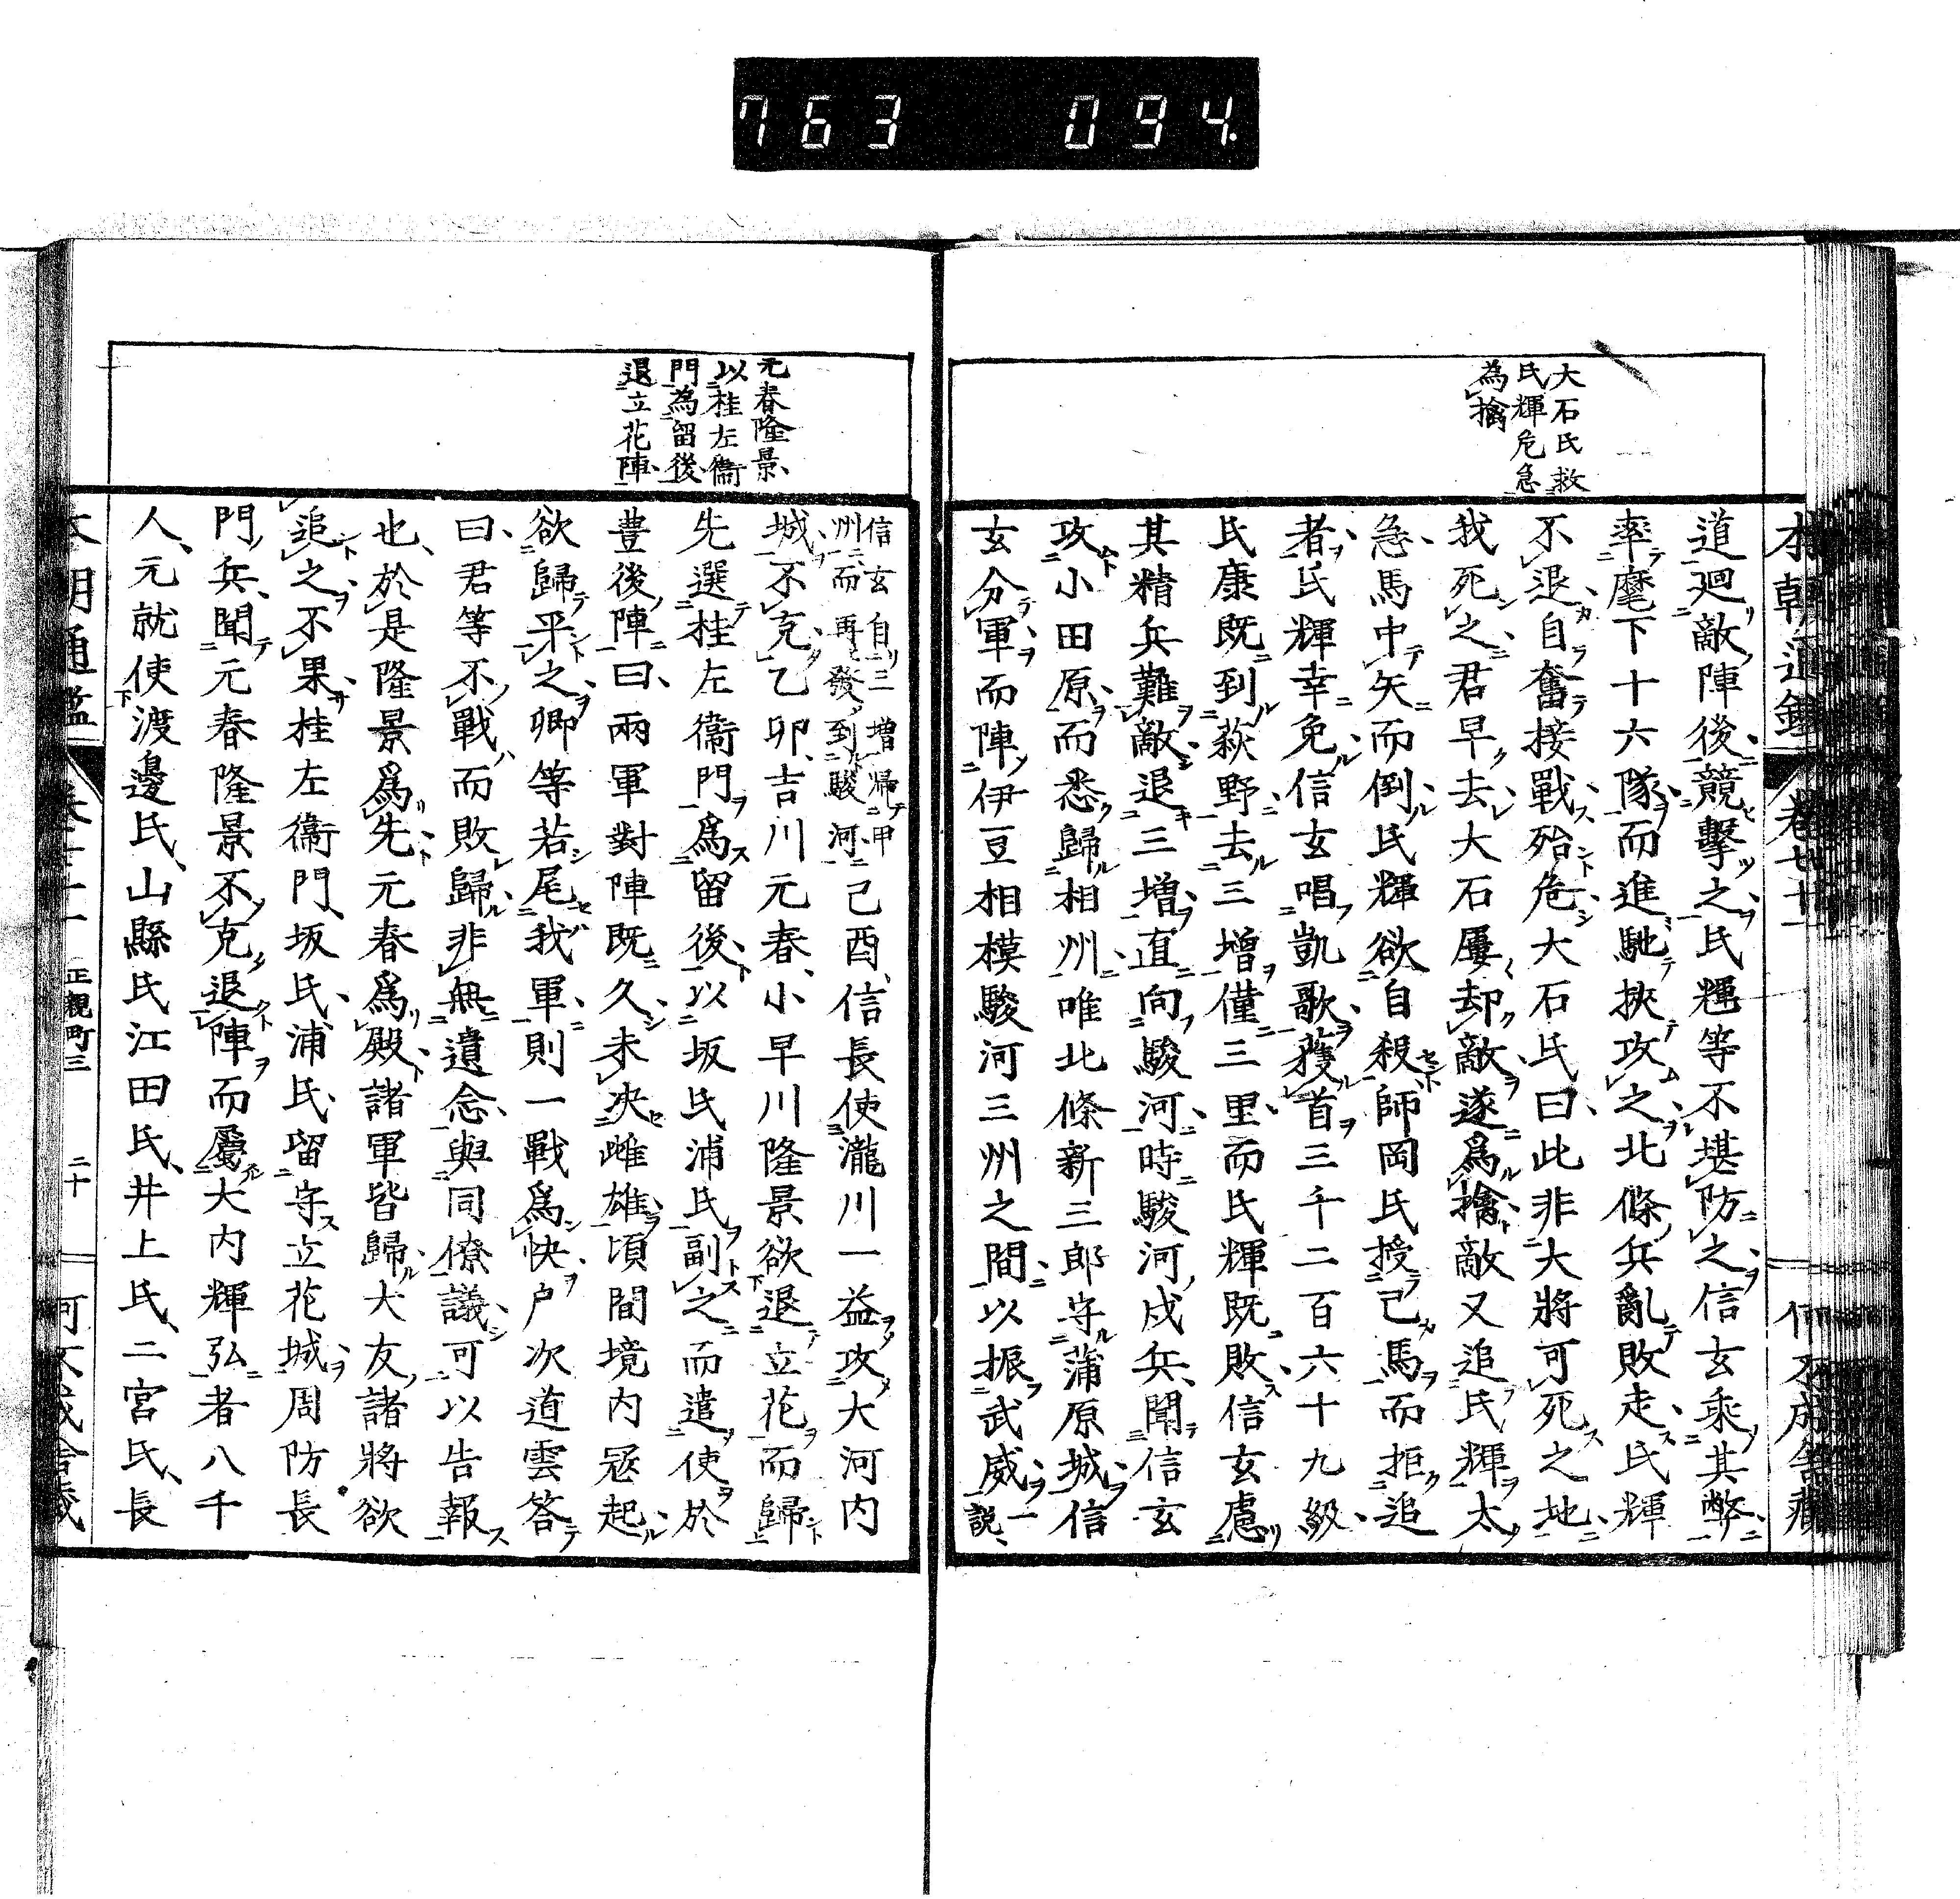 763 094.
大石氏救
氏輝危急
為擒
道廻敵陣後競擊之氏輝等不堪防之信玄乘其弊
率麾下十六隊而進馳挾攻之北條兵亂敗走氏輝
不退自奮接戰殆危大石氏曰此非大將可死之地
我死之君早去大石屢却敵遂爲擒敵又追氏輝太
急馬中矢而倒氏輝欲自殺師岡氏授己馬而拒追
者氏輝幸免信玄唱凱歌獲首三千二百六十九級
氏康既到荻野去三增僅三里而氏輝既敗信玄慮
其精兵難敵退三增直向駿河時駿河戍兵聞信玄
攻小田原而悉歸相州唯北條新三郎守蒲原城信
玄分軍而陣伊豆相模駿河三州之間以振武威一說
元春隆景
以桂左衞
門為留後
退立花陣
信玄自三增帰甲
州而再發到駿河
己酉信長使瀧川一益攻大河内
城不克乙卯吉川元春小早川隆景欲退立花而歸
先選桂左衞門爲留後以坂氏浦氏副之而遣使於
豊後陣曰兩軍對陣既久未决雌雄頃間境内冦起
欲歸平之卿等若尾我軍則一戰爲快戸次道雲答
曰君等不戰而敗歸非無遺念與同僚議可以告報
也於是隆景爲先元春爲殿諸軍皆歸大友諸將欲
追之不果桂左衞門坂氏浦氏留守立花城周防長
門兵聞元春隆景不克退陣而屬大内輝弘者八千
人元就使渡邊氏山縣氏江田氏井上氏二宮氏長
正親町三
二十